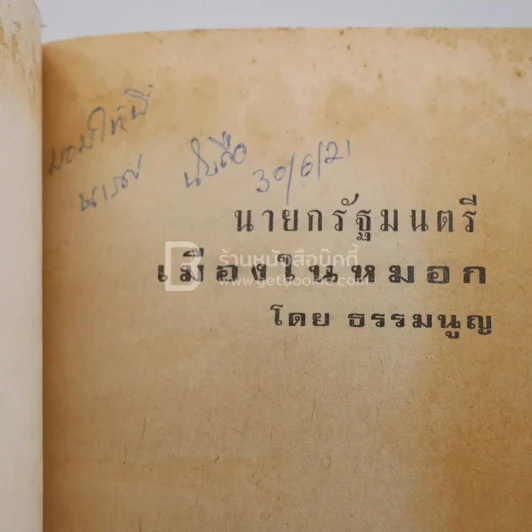 มอบให้พี่
นับถือ
30/6/21
นายกรัฐมนตรี
เมืองในหมอก
โดย ธรรมนูญ
ร้านหนังสือบุ๊คกี้